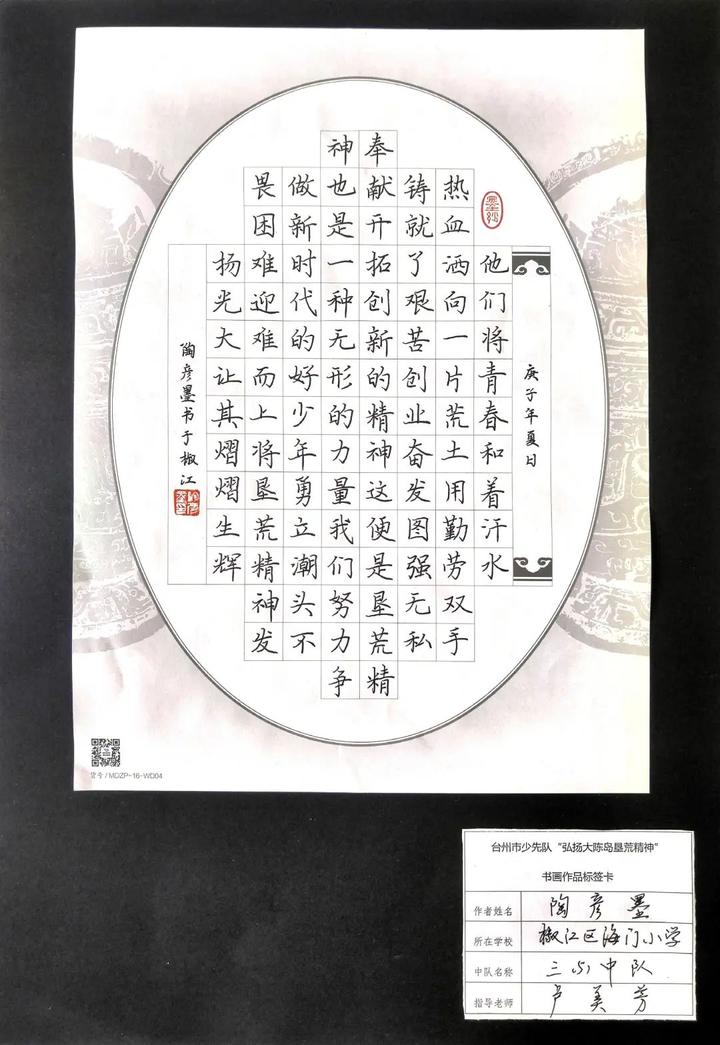 庚子年夏日
他们将青春和着汗水
热血洒向一片荒土用勤劳双手
铸就了艰苦创业奋发图强无私
奉献开拓创新的精神这便是垦荒精
神也是一种无形的力量我们努力争
做新时代的好少年勇立潮头不
畏困难迎难而上将垦荒精神发
扬光大让其熠熠生辉
陶彦墨书于椒江
货号/MDZP-16-WD04
台州市少先队“弘扬大陈岛垦荒精神”
书画作品标签卡
作者姓名 陶彦墨
所在学校 椒江区海门小学
中队名称 三(5)中队
指导老师 卢美芳